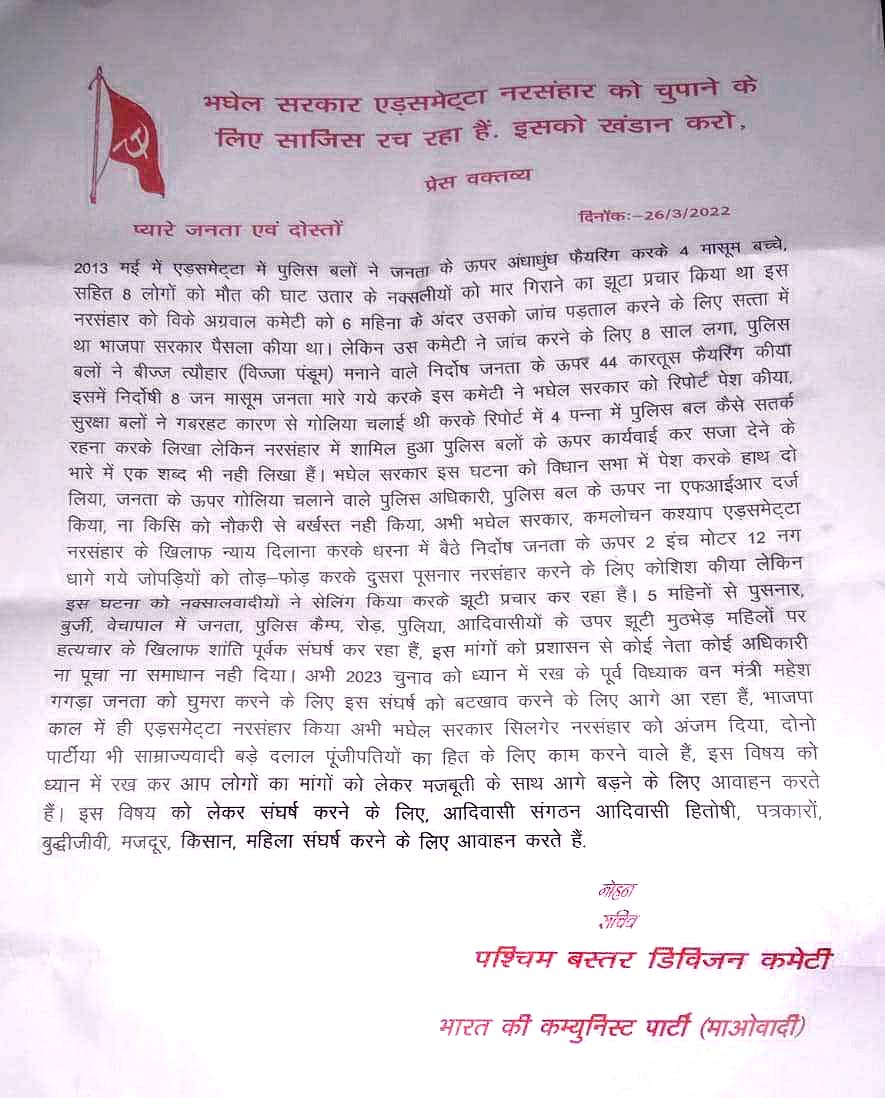 भघेल सरकार एड़समेट्टा नरसंहार को चुपाने के
लिए साजिस रच रहा हैं. इसको खंडान करो,
प्रेस वक्तव्य
दिनाँकः-26/3/2022
प्यारे जनता एवं दोस्तों
2013 मई में एड़समेट्टा में पुलिस बलों ने जनता के ऊपर अंधाधुंध फैयरिंग करके 4 मासूम बच्चे,
सहित 8 लोगों को मौत की घाट उतार के नक्सलीयों को मार गिराने का झूटा प्रचार किया था इस
नरसंहार को विके अग्रवाल कमेटी को 6 महिना के अंदर उसको जांच पड़ताल करने के लिए सत्ता में
था भाजपा सरकार पैसला कीया था। लेकिन उस कमेटी ने जांच करने के लिए 8 साल लगा, पुलिस
बलों ने बीज्ज त्यौहार (विज्जा पंडूम) मनाने वाले निर्दोष जनता के ऊपर 44 कारतूस फैयरिंग कीया
इसमें निर्दोषी 8 जन मासूम जनता मारे गये करके इस कमेटी ने भघेल सरकार को रिपोर्ट पेश कीया,
सुरक्षा बलों ने गबरहट कारण से गोलिया चलाई थी करके रिपोर्ट में 4 पन्ना में पुलिस बल कैसे सतर्क
रहना करके लिखा लेकिन नरसंहार में शामिल हुआ पुलिस बलों के ऊपर कार्यवाई कर सजा देने के
भारे में एक शब्द भी नही लिखा हैं। भघेल सरकार इस घटना को विधान सभा में पेश करके हाथ दो
लिया, जनता के ऊपर गोलिया चलाने वाले पुलिस अधिकारी, पुलिस बल के ऊपर ना एफआईआर दर्ज
किया, ना किसि को नौकरी से बर्खस्त नही किया, अभी भघेल सरकार, कमलोचन कश्याप एड़समेट्टा
नरसंहार के खिलाफ न्याय दिलाना करके धरना में बैठे निर्दोष जनता के ऊपर 2 इंच मोटर 12 नग
धागे गये जोपड़ियों को तोड़–फोड़ करके दुसरा पूसनार नरसंहार करने के लिए कोशिश कीया लेकिन
इस घटना को नक्सालवादीयों ने सेलिंग किया करके झूटी प्रचार कर रहा हैं। 5 महिनों से पुसनार,
बुर्जी, वेचापाल में जनता, पुलिस कैम्प, रोड़, पुलिया, आदिवासीयों के उपर झूटी मुठभेड़ महिलों पर
हत्यचार के खिलाफ शांति पूर्वक संघर्ष कर रहा हैं, इस मांगों को प्रशासन से कोई नेता कोई अधिकारी
ना पूचा ना समाधान नही दिया। अभी 2023 चुनाव को ध्यान में रख के पूर्व विध्याक वन मंत्री महेश
गगड़ा जनता को घुमरा करने के लिए इस संघर्ष को बटखाव करने के लिए आगे आ रहा हैं, भाजपा
काल में ही एड़समेट्टा नरसंहार किया अभी भघेल सरकार सिलगेर नरसंहार को अंजम दिया, दोनो
पार्टीया भी साम्राज्यवादी बड़े दलाल पूंजीपतियों का हित के लिए काम करने वाले हैं, इस विषय को
ध्यान में रख कर आप लोगों का मांगों को लेकर मजबूती के साथ आगे बड़ने के लिए आवाहन करते
हैं। इस विषय को लेकर संघर्ष करने के लिए, आदिवासी संगठन आदिवासी हितोषी, पत्रकारों,
बुद्धीजीवी, मजदूर, किसान, महिला संघर्ष करने के लिए आवाहन करते हैं.
मोहन
सचिव
पश्चिम बस्तर डिविजन कमेटी
भारत की कम्युनिस्ट पार्टी (माओवादी)